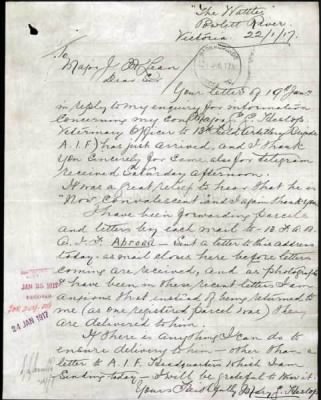 "The Wattles"
Powlett River.
Victoria. 22/1/17.
To
Major J. McLean
Dear Sir
Your letter of 19th Jan
in reply to my enquiry for information
concerning my son (Major J. G. Heslop
Veterinary Officer to 13th Field Artillery Brigade
A.I.F) has just arrived, and I thank
you sincerely for same also for telegram
received Saturday afternoon.
It was a great relief to hear that he is
"Now Convalescent" and I again thank you
I have been forwarding parcels
and letters by each mail to 13 F.A.B.
A.I.F Abroad – Sent a letter to this address
today, as mail closes here before letters
coming are received, and as photographs
have been in these recent letters I am
anxious that instead of being returned to
me (as one registered parcel was) they
are delivered to him.
If there is anything I can do to
ensure delivery to him – other than a
letter to A.I.F. Headquarters which I am
sending today – I will be grateful to know it.
Yours Faithfully Mary J. Heslop
JAN 25 1917
24 JAN 1917